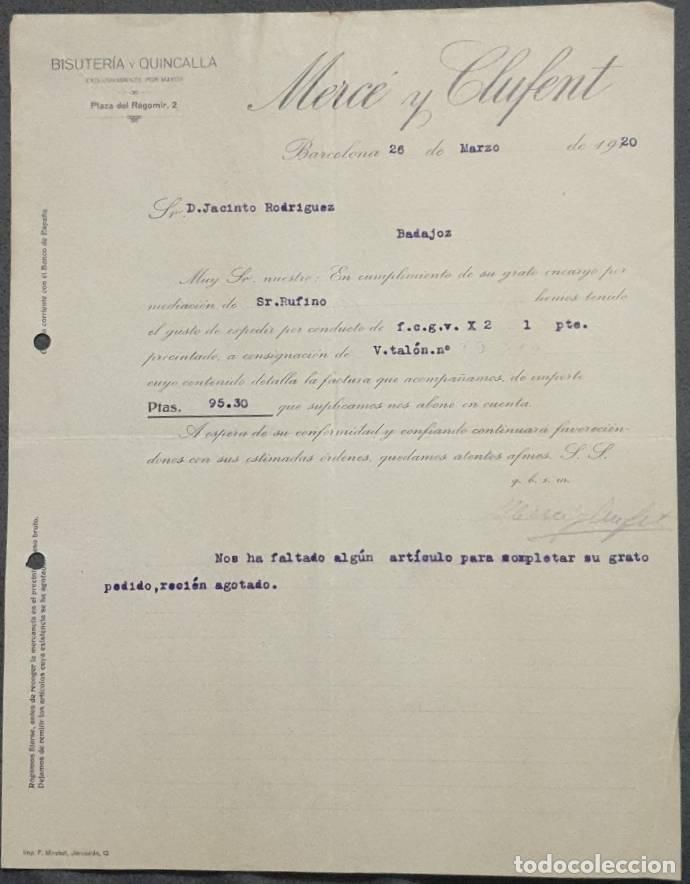 BISUTERÍA Y QUINCALLA
EXCLUSIVAMENTE POR MAYOR
Plaza del Regomir, 2
Mercé y Clufent
Barcelona 26 de Marzo de 1920
Sr. D.Jacinto Rodriguez
Badajoz
Muy Sr. nuestro: En cumplimiento de su grato encargo por
mediación de Sr.Rufino hemos tenido
el gusto de expedir por conducto de f.c.g.v. X 2 1 pte.
precintado, a consignación de V.talón.nº
cuyo contenido detalla la factura que acompañamos, de importe
Ptas. 95.30 que suplicamos nos abone en cuenta.
A espera de su conformidad y confiando continuará favorecién-
donos con sus estimadas órdenes, quedamos atentos afmos. S. S.
q. b. s. m.
Mercé y Clufent
Nos ha faltado algún artículo para completar su grato
pedido,recién agotado.
corriente con el Banco de España
Rogamos fijarse, antes de recoger la mercancía en el precinto bruto.
Dejamos de remitir los artículos cuya existencia se ha agotado
Imp. F. Mirabet, 13
todocoleccion